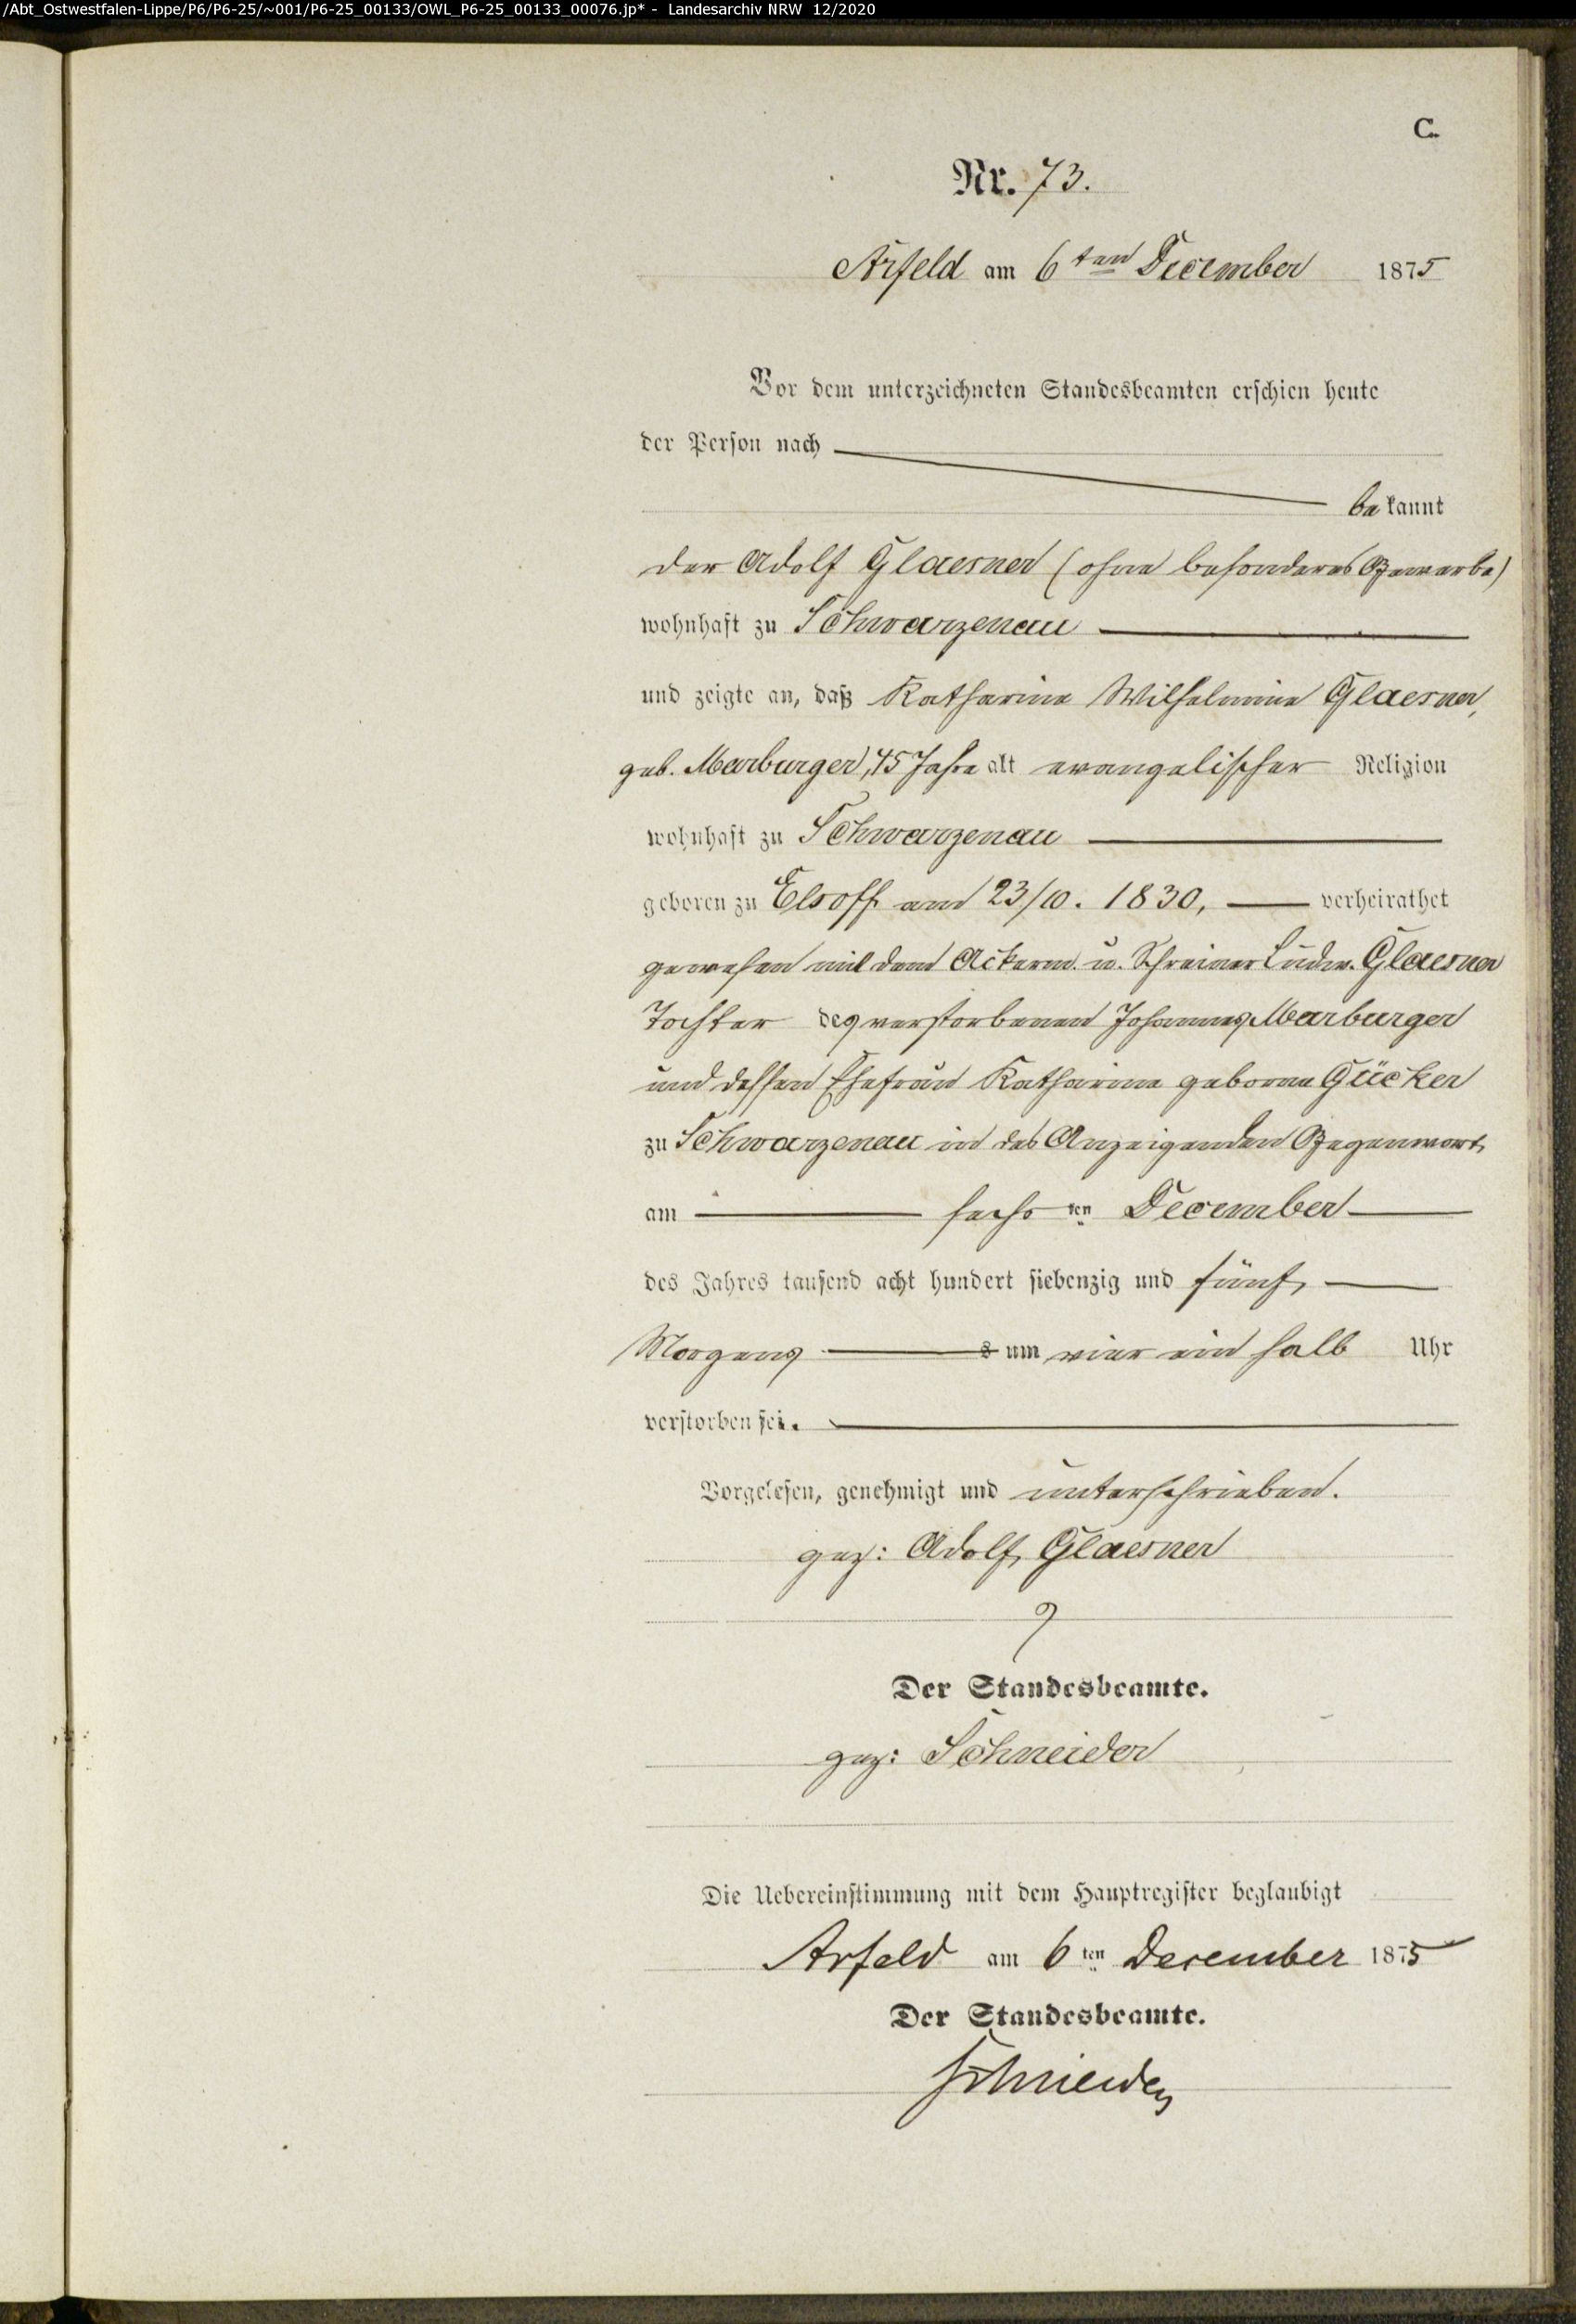 /Abt_Ostwestfalen-Lippe/P6/P6-25/~001/P6-25_00133/OWL_P6-25_00133_00076.jp* - Landesarchiv NRW 12/2020
C.
Nr. 73.
Arfeld am 6ten December 1875
Vor dem unterzeichneten Standesbeamten erschien heute
der Person nach
bekannt
der Adolf Glaesner (ohne besonderes Gewerbe)
wohnhaft zu Schwarzenau
und zeigte an, daß Katharine Wilhelmine Glaesner,
geb. Marburger, 45 Jahre alt evangelischer Religion
wohnhaft zu Schwarzenau
geboren zu Elsoff am 23/10. 1830, verheirathet
gewesen mit dem Ackerm. u. Schreiner Ludw. Glaesner
Tochter des verstorbenen Johannes Marburger
und dessen Ehefrau Katharine geborne Gücker
zu Schwarzenau in des Anzeigenden Gegenwart,
am sechsten December
des Jahres tausend acht hundert siebenzig und fünf,
Morgens um vier ein halb Uhr
verstorben sei.
Vorgelesen, genehmigt und unterschrieben.
gez: Adolf Glaesner
Der Standesbeamte.
gez: Schneider
Die Uebereinstimmung mit dem Hauptregister beglaubigt
Arfeld am 6ten December 1875
Der Standesbeamte.
Schneider